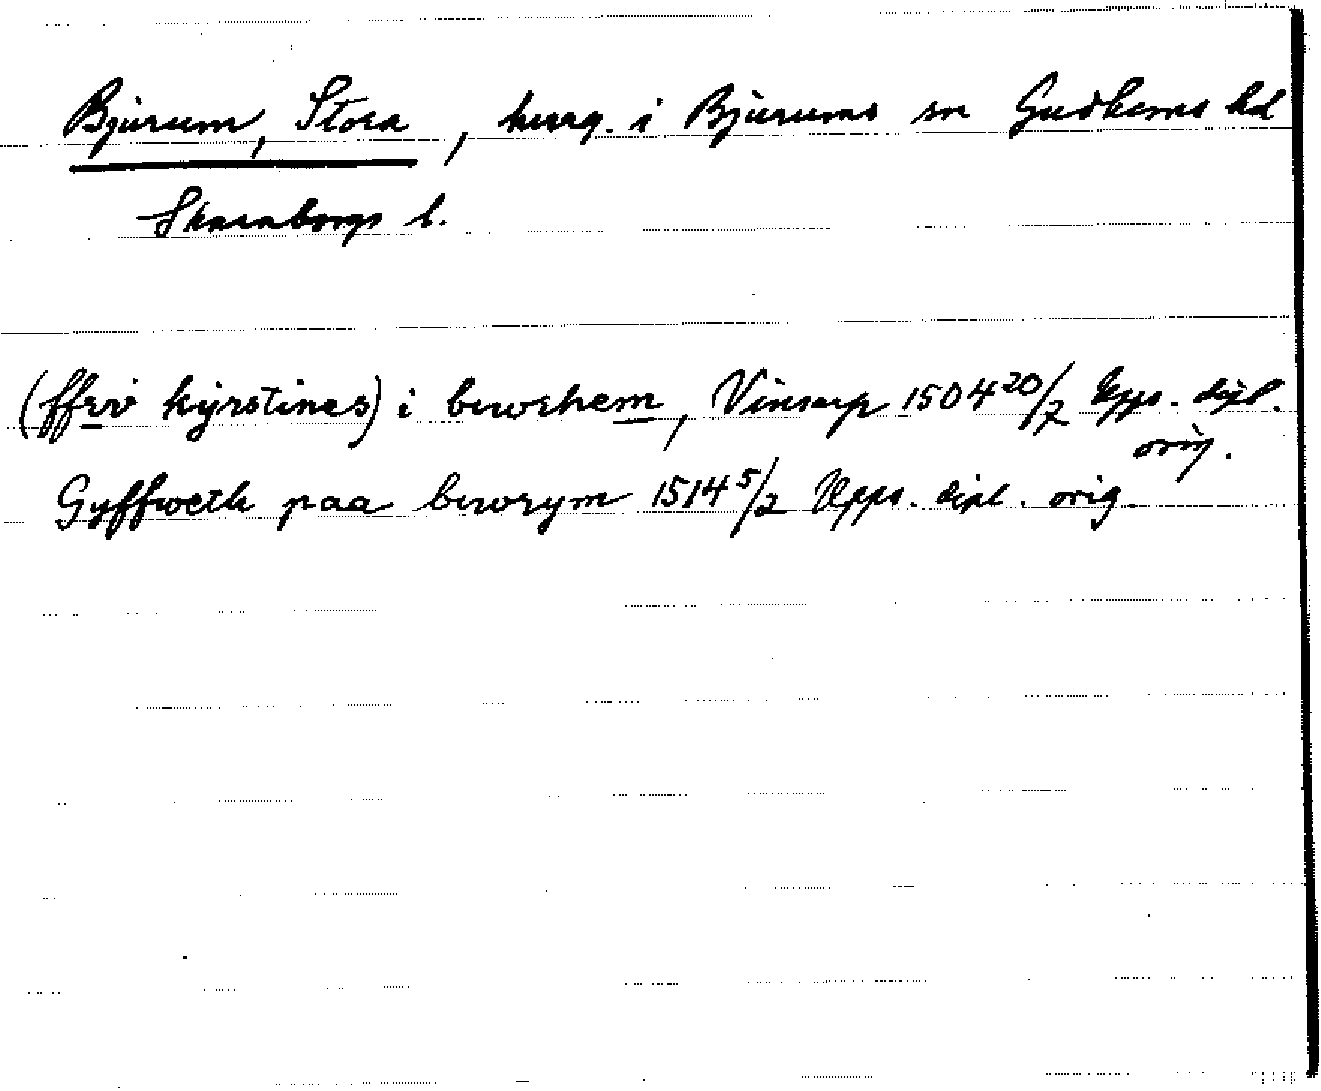 Bjurum, Stora, herrg. i Bjurums sn Gudhems hd
Skaraborgs l.
(ffrv kyrstines) i biwrhem, Vinsarp 1504 20/2 Upps. dipl.
orig.
Gyffweth paa biwrym 1514 5/2 Upps. dipl. orig.